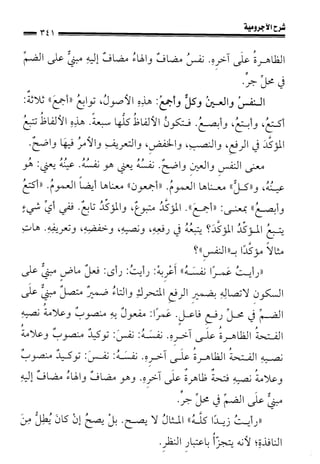 شرح الآجرومية
٣٤١
الظاهرةُ على آخرِهِ. نفسُ مضافٌ والهاءُ مضافٌ إليهِ مبنيٌّ على الضمِّ
في محلِّ جرٍّ.
النـفسُ والعـينُ وكلٌّ وأجمعُ: هذِهِ الأصولُ، توابعُ «أجمَعَ» ثلاثةٌ:
أكتعُ، وأبتعُ، وأبصعُ. فـتكونُ الألفاظُ كلُّـها سبعةٌ. هذِهِ الألفاظُ تتبعُ
المؤكَّدَ في الرفعِ، والنصبِ، والخفضِ، والتعريفِ والأمرُ فيهَا واضحٌ.
معنى النفسِ والعين واضحٌ. نفسُهُ يعني هو نفسُهُ. عينُهُ يعني: هُو
عينُهُ، و«كلّ» معنـاها العمومُ. «أجمعون» معناها أيضاً العمومُ. «أكتعُ
وأبصعُ» بمعنـى: «أجمـعَ». المؤكدُ متبوعٌ، والمؤكَّدُ تابعٌ. ففي أيِّ شيءٍ
يتبعُ المـؤكدُ المؤكدَ؟ يتبعُهُ في رفعِهِ، ونصبِهِ، وخفضِهِ، وتعريفِهِ. هاتِ
مثالاً مؤكدًا بـ«النفسِ»؟
«رأيـتُ عَمـرًا نفسَـهُ» أعْرِبْهُ: رأيتُ: رأى: فعلٌ ماضٍ مبنيٌّ على
السكونِ لاتصالِهِ بضميرِ الرفعِ المتحركِ والتاءُ ضميرٌ متصلٌ مبنيٌّ على
الضمِّ في محـلِّ رفـعٍ فاعـلٍ. عَمرًا: مفعولٌ بِهِ منصوبٌ وعلامةُ نصبِهِ
الفـتحةُ الظاهـرةُ على آخرِهِ. نفسَـهُ: نفسَ: توكيدٌ منصوبٌ وعلامةُ
نصبِهِ الفـتحةُ الظاهـرةُ علـى آخـرِهِ. نفسَـهُ: نفسَ: توكـيدٌ منصوبٌ
وعلامةُ نصبِهِ فتحةٌ ظاهرةٌ على آخرِهِ. وهو مضافٌ والهاءُ مضافٌ إليهِ
مبنيٌّ على الضمِّ في محلِّ جرٍّ.
«رأيـتُ زيـدًا كلَّـهُ» المـثالُ لا يصـح. بلْ يصحُّ إنْ كانَ يُطِلُّ مِنَ
النافذةِ؛ لأنه يتجزَّأُ باعتبارِ النظرِ.